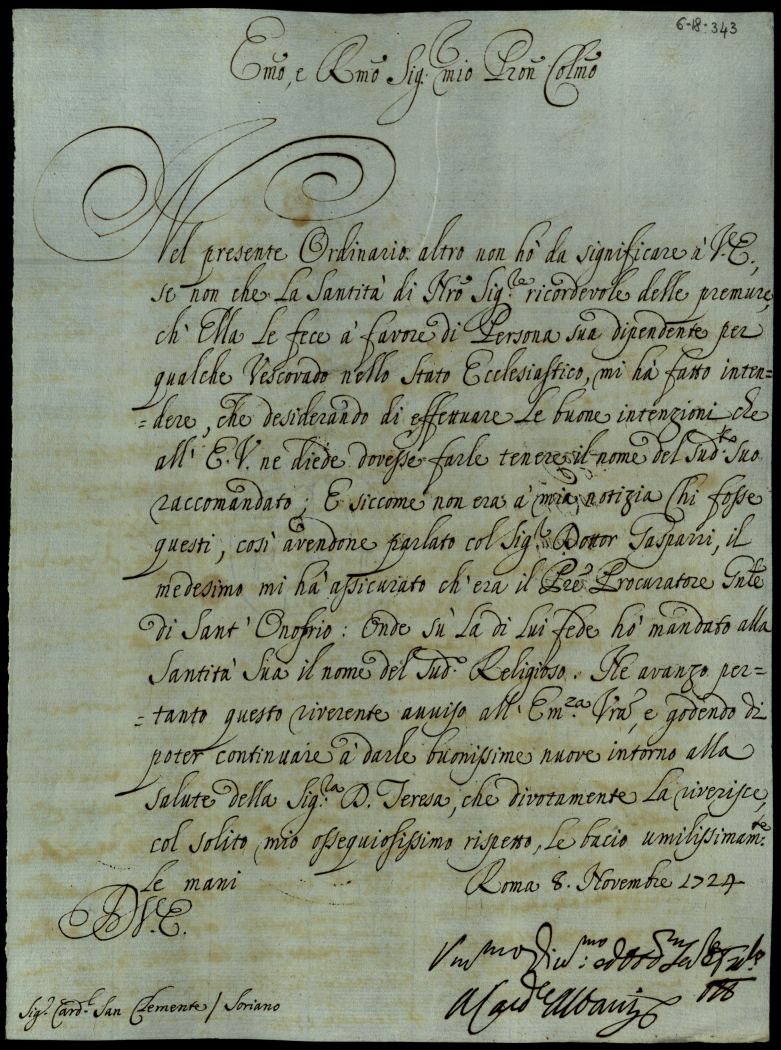 6-18-343
Emo, e Rmo Sig.r mio Pron Colmo
Nel presente Ordinario altro non hò da significare à V.E.,
se non che La Santità di Nro Sig.re ricordevole delle premure,
ch' Ella Le fece à favore di Persona sua dipendente per
qualche Vescovado nello Stato Ecclesiastico, mi hà fatto inten=
=dere, che desiderando di effettuare Le buone intenzioni che
all' E.V. ne diede dovesse farle tenere il nome del Sud.to suo
raccomandato; E siccome non era à mia notizia Chi fosse
questi, così avendone parlato col Sig.r Dottor Gasparri, il
medesimo mi hà assicurato ch'era il Pre Procuratore Gnle
di Sant' Onofrio: Onde sù La di Lui fede hò mandato alla
Santità Sua il nome del Sud.o Religioso. Ne avanzo per=
=tanto questo riverente avviso all' Em.za Vra, e godendo di
poter continuare à darle buonissime nuove intorno alla
salute della Sig.ra D. Teresa, che divotamente La riverisce,
col solito mio ossequiosissimo rispetto, Le bacio umilissimam.te
Le mani Roma 8. Novembre 1724
D V.E.
A Card.l Albani
Sig.r Card.l San Clemente / Soriano